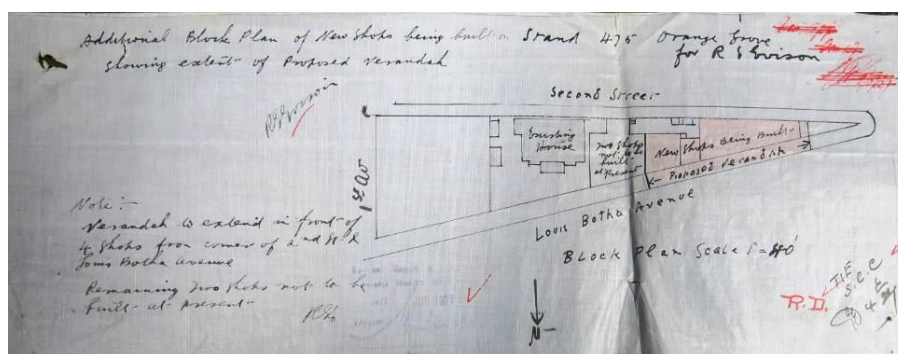 Additional Block Plan of New Shops being built on Stand 475 Orange Grove
Showing extent of Proposed Verandah
for R S Evison
Second Street
Existing House
Two Shops not to be built at Present
New Shops Being Built
Proposed Verandah
1st Av
Louis Botha Avenue
Block Plan Scale 1"=40'
Note:-
Verandah to extend in front of
4 Shops from corner of 2nd St &
Louis Botha Avenue
Remaining two shops not to be
built at present
N
R.D.